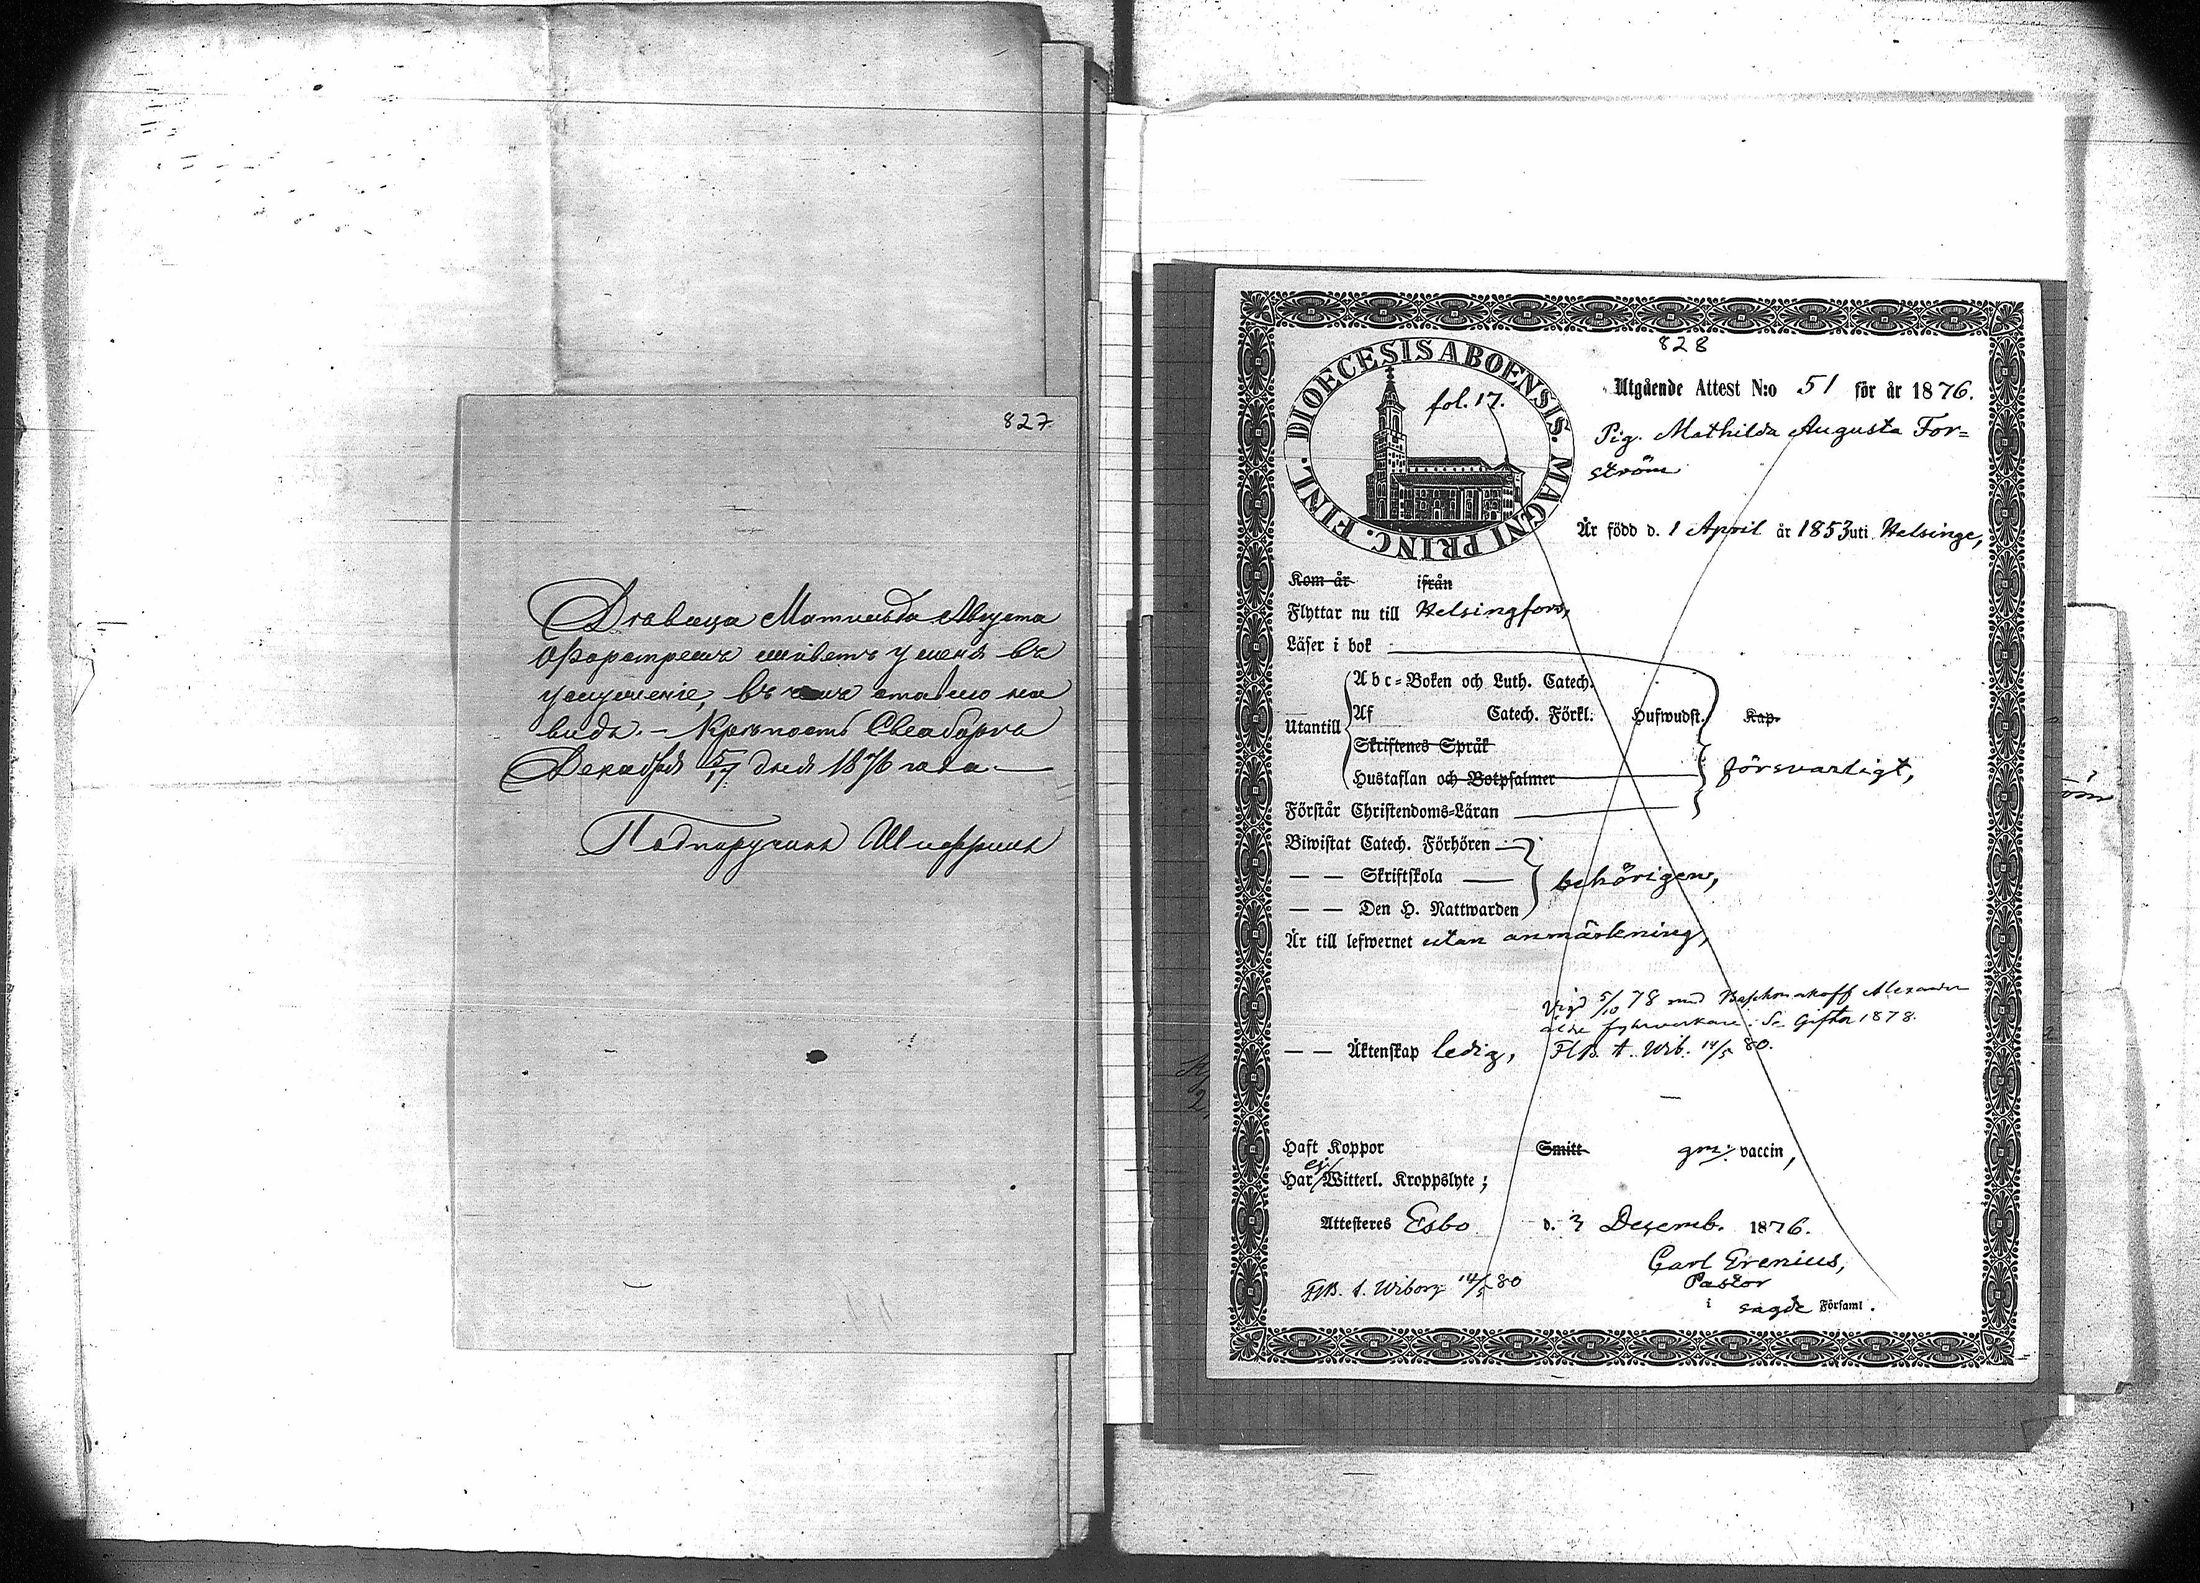 827
Дѣвица Матильда Августа
Форстремъ живетъ у меня въ
услуженіе, въ чемъ ставлю на
видъ. – Крѣпость Свеаборгъ
Декабря 5/17 дня 1876 года. —
Подпоручикъ
828
DIOECESIS ABOENSIS. MAGNI PRINC. FINL.
fol. 17.
Utgående Attest N:o 51 för år 1876.
Pig. Mathilda Augusta For=
ström
Är född d. 1 April år 1853 uti Helsinge,
Kom år ifrån
Flyttar nu till Helsingfors,
Läser i bok
Abc=Boken och Luth. Catech.
Utantill Af Catech. Förkl. Hufwudst. Kap.
Skriftenes Språk
Hustaflan och Botpsalmer försvarligt,
Förstår Christendoms=Läran
Biwistat Catech. Förhören
— — Skriftskola — behörigen,
— — Den H. Nattwarden
Är till lefwernet utan anmärkning,
Vigd 5/10 78 med Alexander
äldre fyrverkare. Se Giftn 1878.
— — Äktenskap ledig, FlB. t. Wib. 14/5 80.
Haft Koppor Smitt gm: vaccin,
Har ej Witterl. Kroppslyte;
Attesteres Esbo d. 3 Decemb. 1876.
Carl Grenius,
Pastor
i sagde Församl.
FlB. t. Wiborg 14/5 80